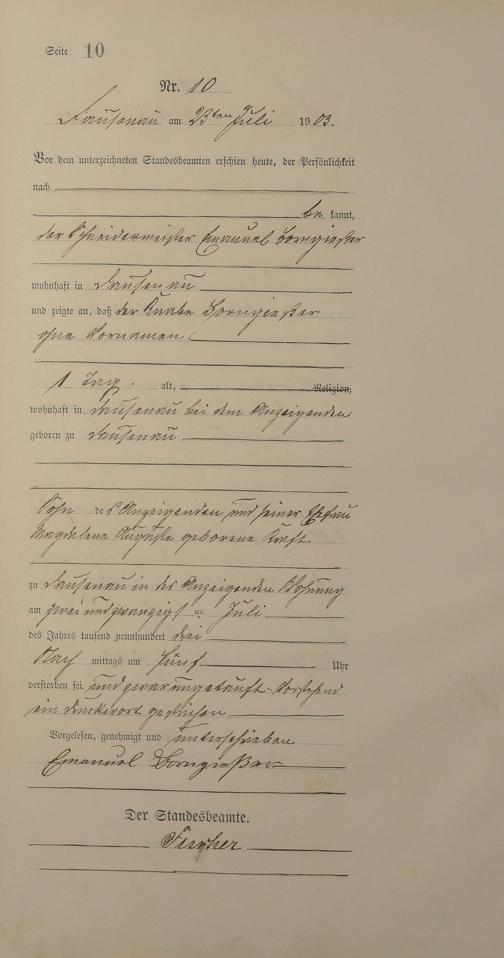 Seite 10
Nr. 10
Dausenau am 23ten Juli 1903.
Vor dem unterzeichneten Standesbeamten erschien heute, der Persönlichkeit
nach
be kannt,
der Schneidermeister Emanuel Borngießer
wohnhaft in Dausenau
und zeigte an, daß der Knabe Borngießer
ohne Vornamen
1 Tag. alt, Religion,
wohnhaft in Dausenau bei dem Anzeigenden
geboren zu Dausenau
Sohn des Anzeigenden und seiner Ehefrau
Magdalene Auguste geborene Kraft
zu Dausenau in des Anzeigenden Wohnung
am zwei und zwanzigsten Juli
des Jahres tausend neunhundert drei
Nach mittags um fünf Uhr
verstorben sei und zwar ungetauft. Vorstehend
ein Druckwort gestrichen
Vorgelesen, genehmigt und unterschrieben
Emanuel Borngießer
Der Standesbeamte.